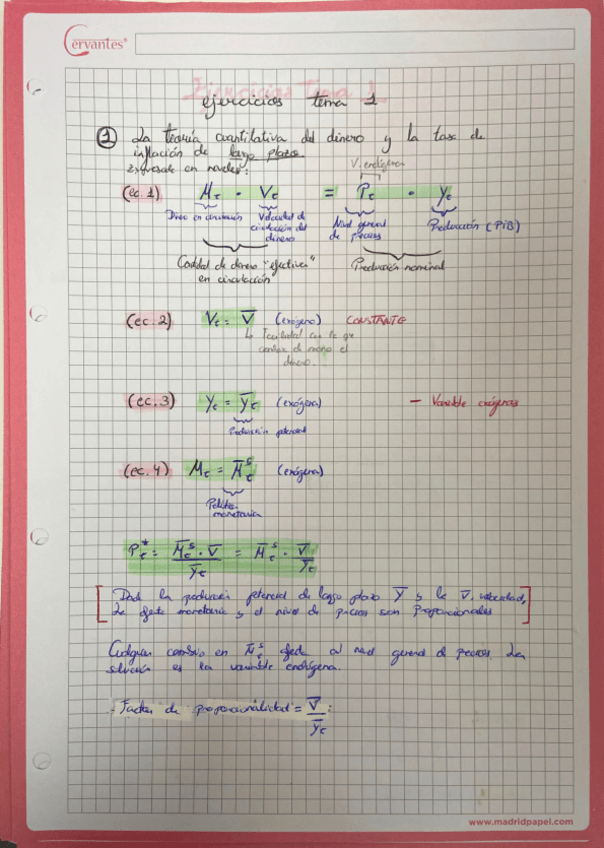 Cervantes
Ejercicios Tema 1
ejercicios tema 1
① La Teoría cuantitativa del dinero y la tasa de
inflación de largo plazo.
Expresate en niveles:
V. endógena
(ec. 1) Mt · Vt = Pt · Yt
Dinero en circulación
Velocidad de circulación del dinero
Nivel general de precios
Producción (PiB)
Cantidad de dinero "efectiva" en circulación
Producción nominal
(ec. 2) Vt = V̅ (exógena) CONSTANTE
↳ Facilidad con la que
cambia de mano el
dinero.
(ec. 3) Yt = Y̅t (exógena) — Variable exógenas
Producción potencial
(ec. 4) Mt = M̅t^s (exógena)
Política
monetaria
Pt* = M̅t^s · V̅ / Y̅t = M̅t^s · V̅ / Y̅t
Dada la producción potencial de largo plazo Y̅ y la V̅, velocidad,
La oferta monetaria y el nivel de precios son proporcionales
Cualquier cambio en M̅t^s afecta al nivel general de precios. La
solución es la variable endógena.
- Factor de proporcionalidad = V̅ / Y̅t :
www.madridpapel.com